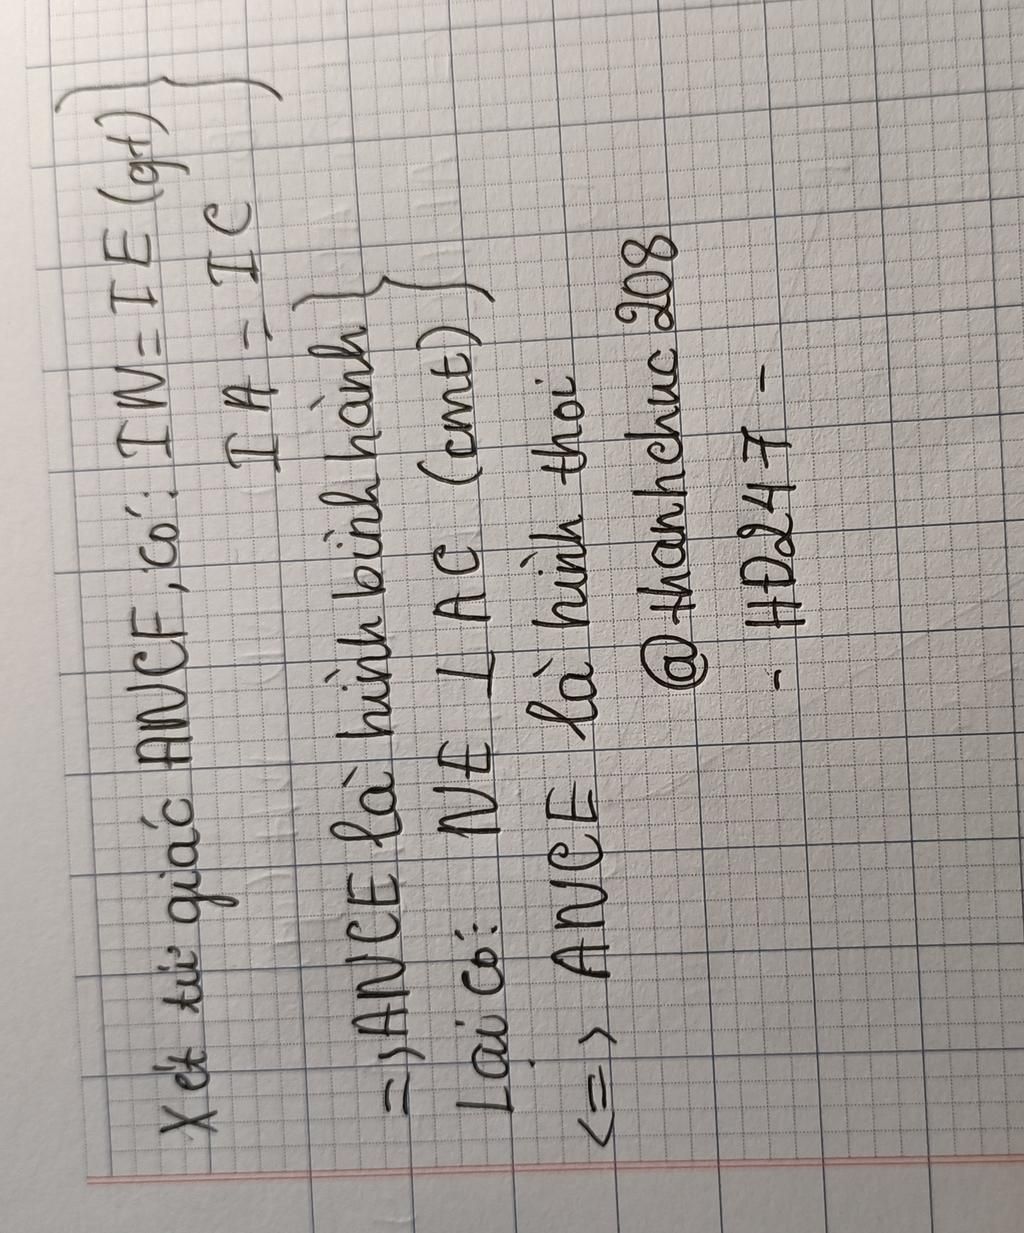 Xét tứ giác ANCE, có: IN = IE (gt) }
IA = IC
=> ANCE là hình bình hành }
Lại có: NE ⊥ AC (cmt)
<=> ANCE là hình thoi
@thanhchuc208
- HĐ247 -